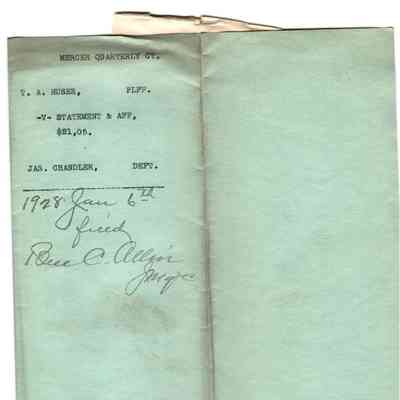 MERCER QUARTERLY CT.
T. A. HUSER, PLFF.
-V- STATEMENT & AFF,
$21,05.
JAS. CHANDLER, DEFT.
1928 Jan 6th
filed
C. Allin